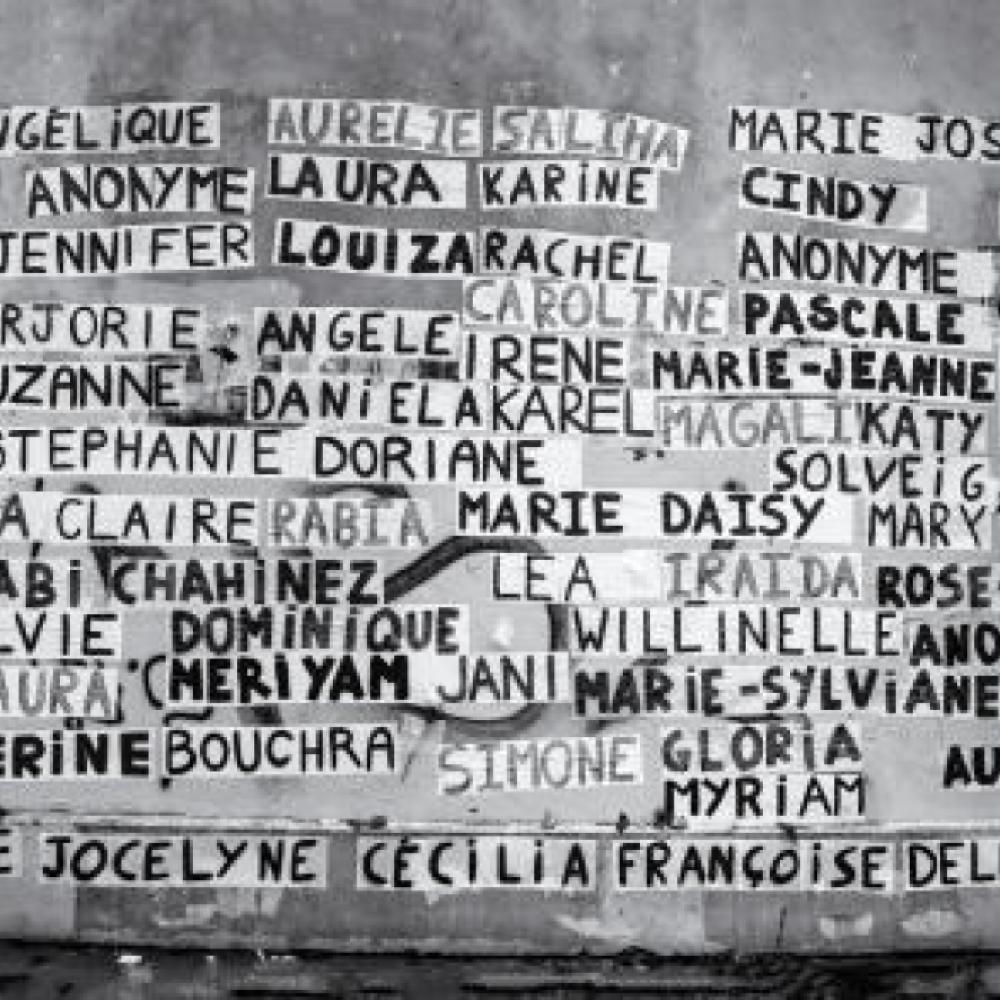 NGÉLiQUE AURELIE SALIHA MARIE JOS
ANONYME LAURA KARiNE CINDY
JENNIFER LOUIZA RACHEL ANONYME
CAROLINE PASCALE
RJORIE ANGELE IRENE MARIE-JEANNE
UZANNE DANiELA KAREL MAGALI KATY
STEPHANIE DORIANE SOLVEiG
A CLAIRE RABIA MARIE DAISY MARY
ABi CHAHiNEZ LEA IRAIDA ROSE
LVIE DOMiNiQUE WILLINELLE ANO
AURA MERiYAM JANI MARiE-SYLViANE
ERiNE BOUCHRA SIMONE GLORiA AU
MYRiAM
E JOCELYNE CÉCiLiA FRANÇOiSE DEL